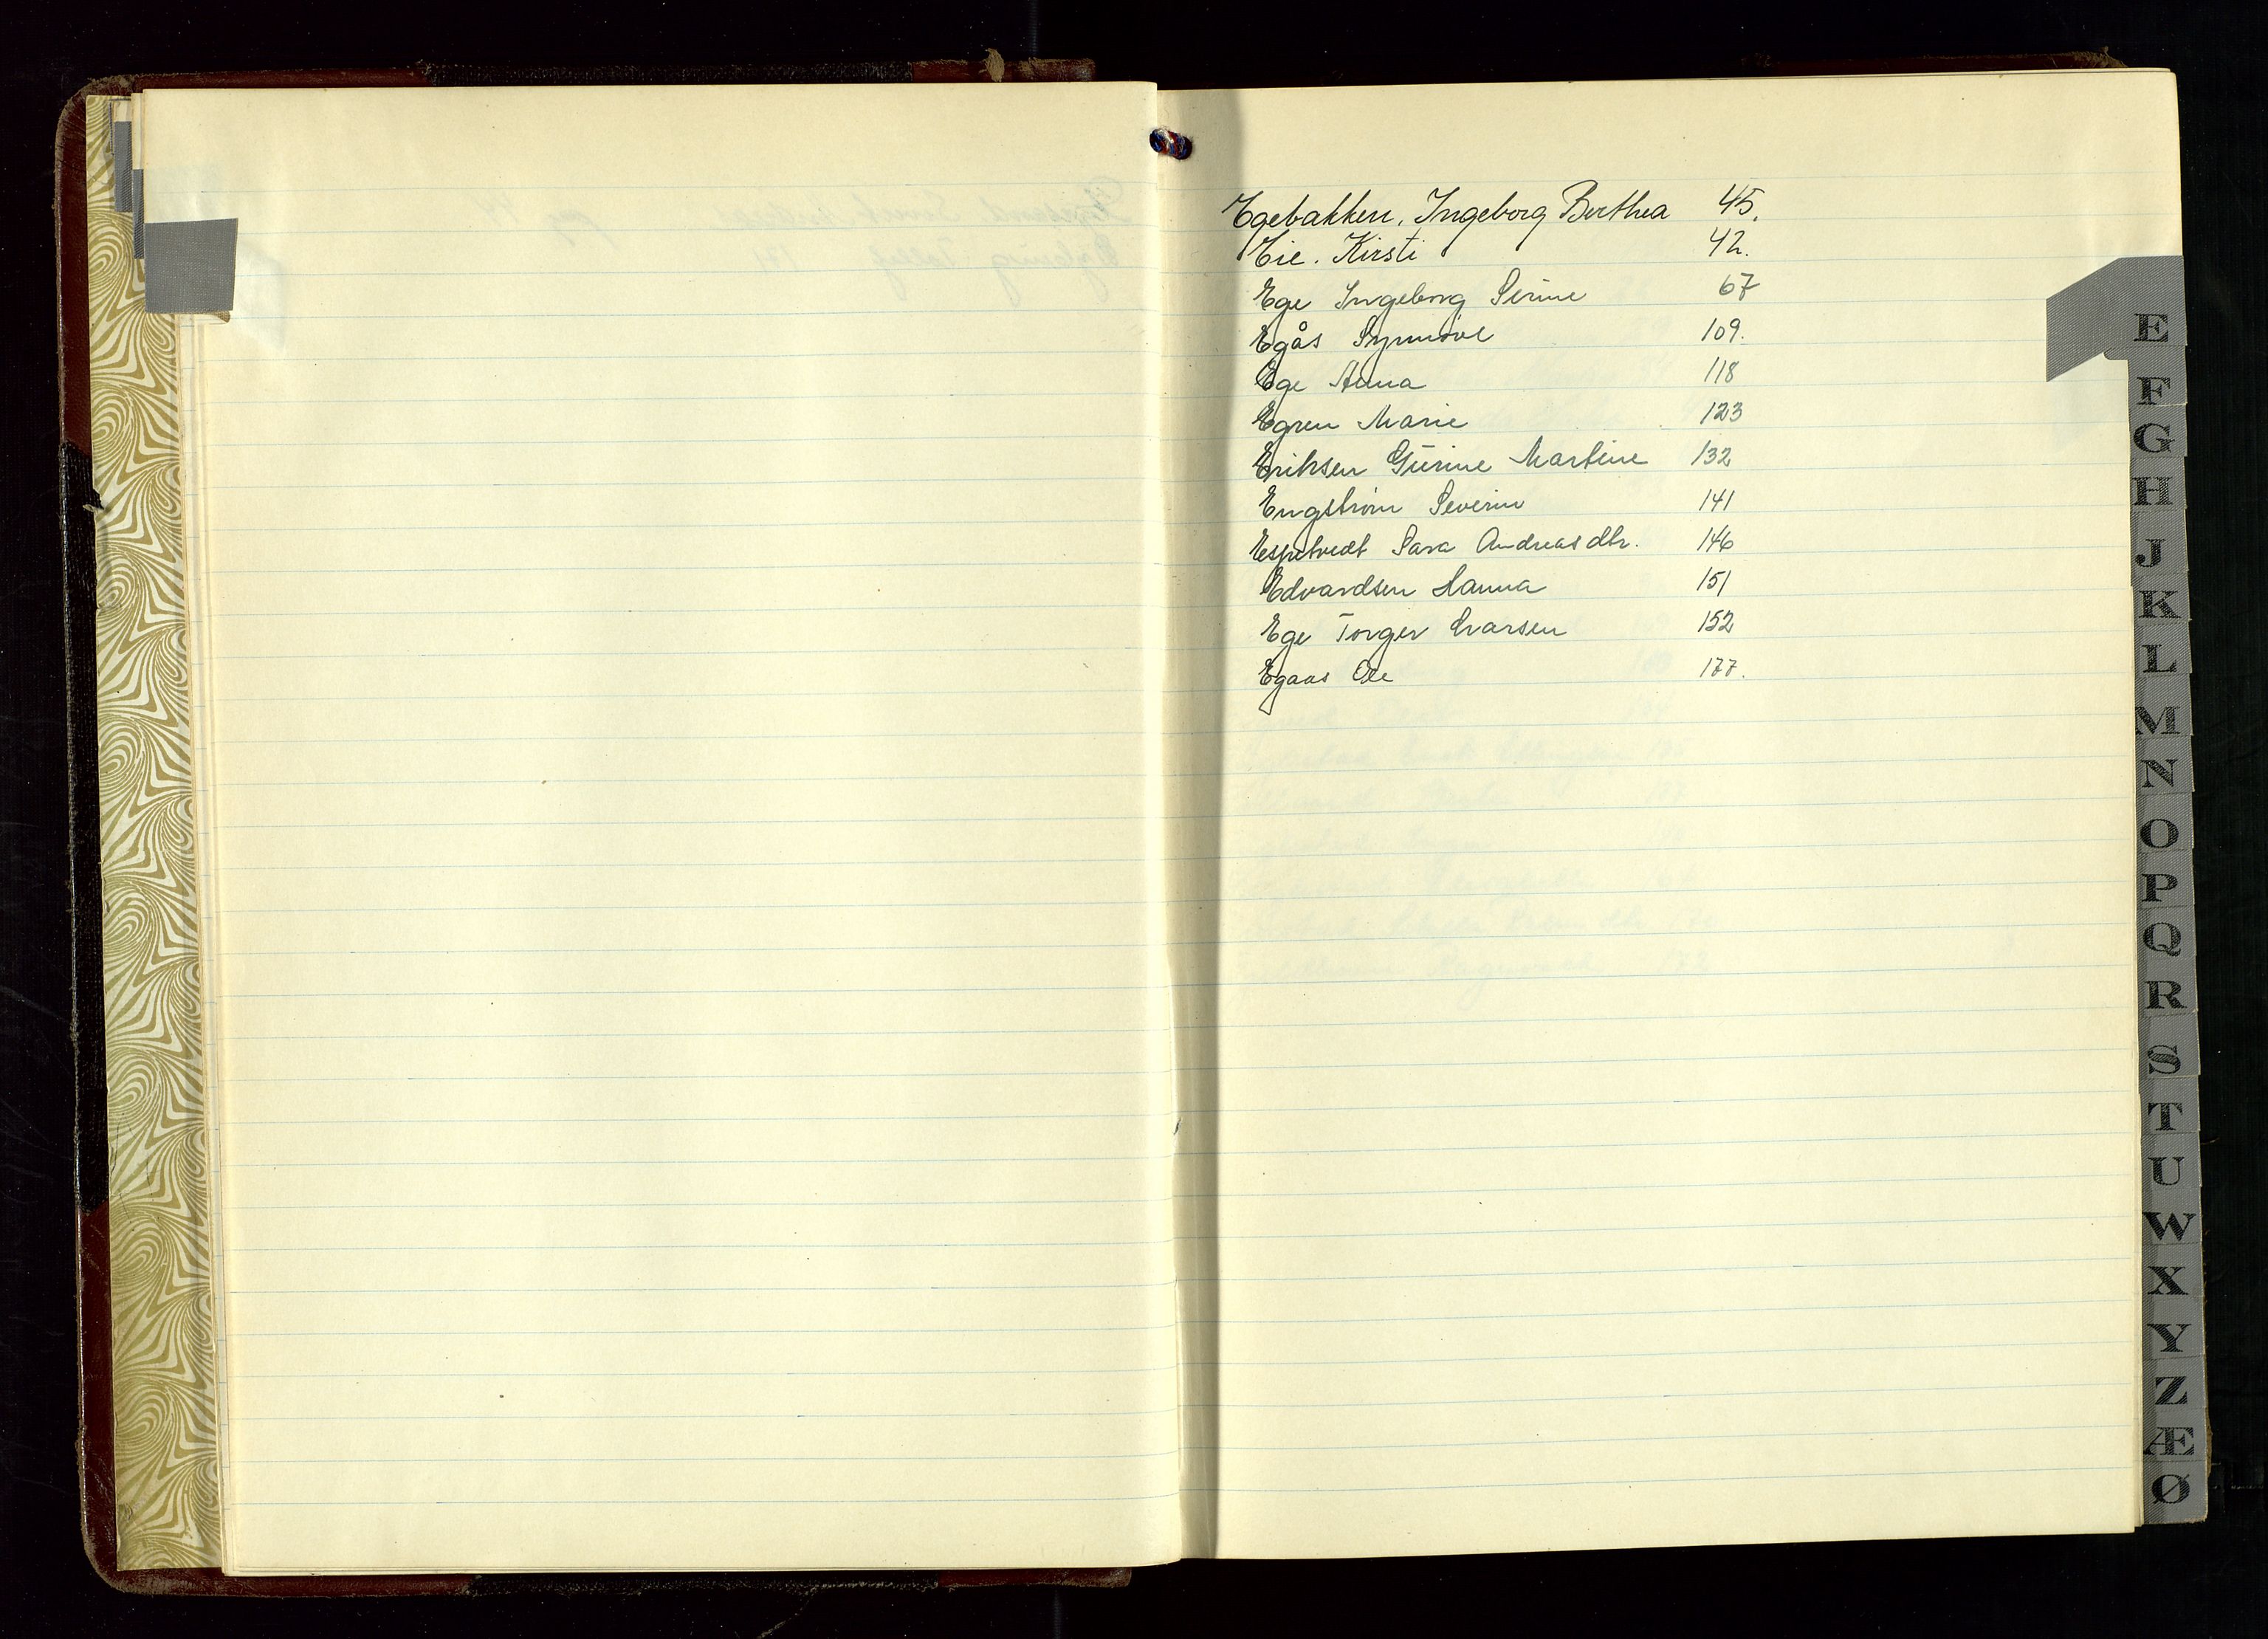 Egebakken, Ingeborg Berthea 45.
Eie. Kirsti 42.
Ege Ingeborg Serine 67
Egås Synnøve 109.
Ege Anna 118
Egren Marie 123
Eriksen Gurine Martine 132
Engstrøm Severin 141
Espetvedt Sara Andreasdtr. 146
Edvardsen Hanna 151
Ege Torger Ivarsen 152
Egaas Ole 177.
E
F
G
H
J
K
L
M
N
O
P
Q
R
S
T
U
W
X
Y
Z
Æ
Ø